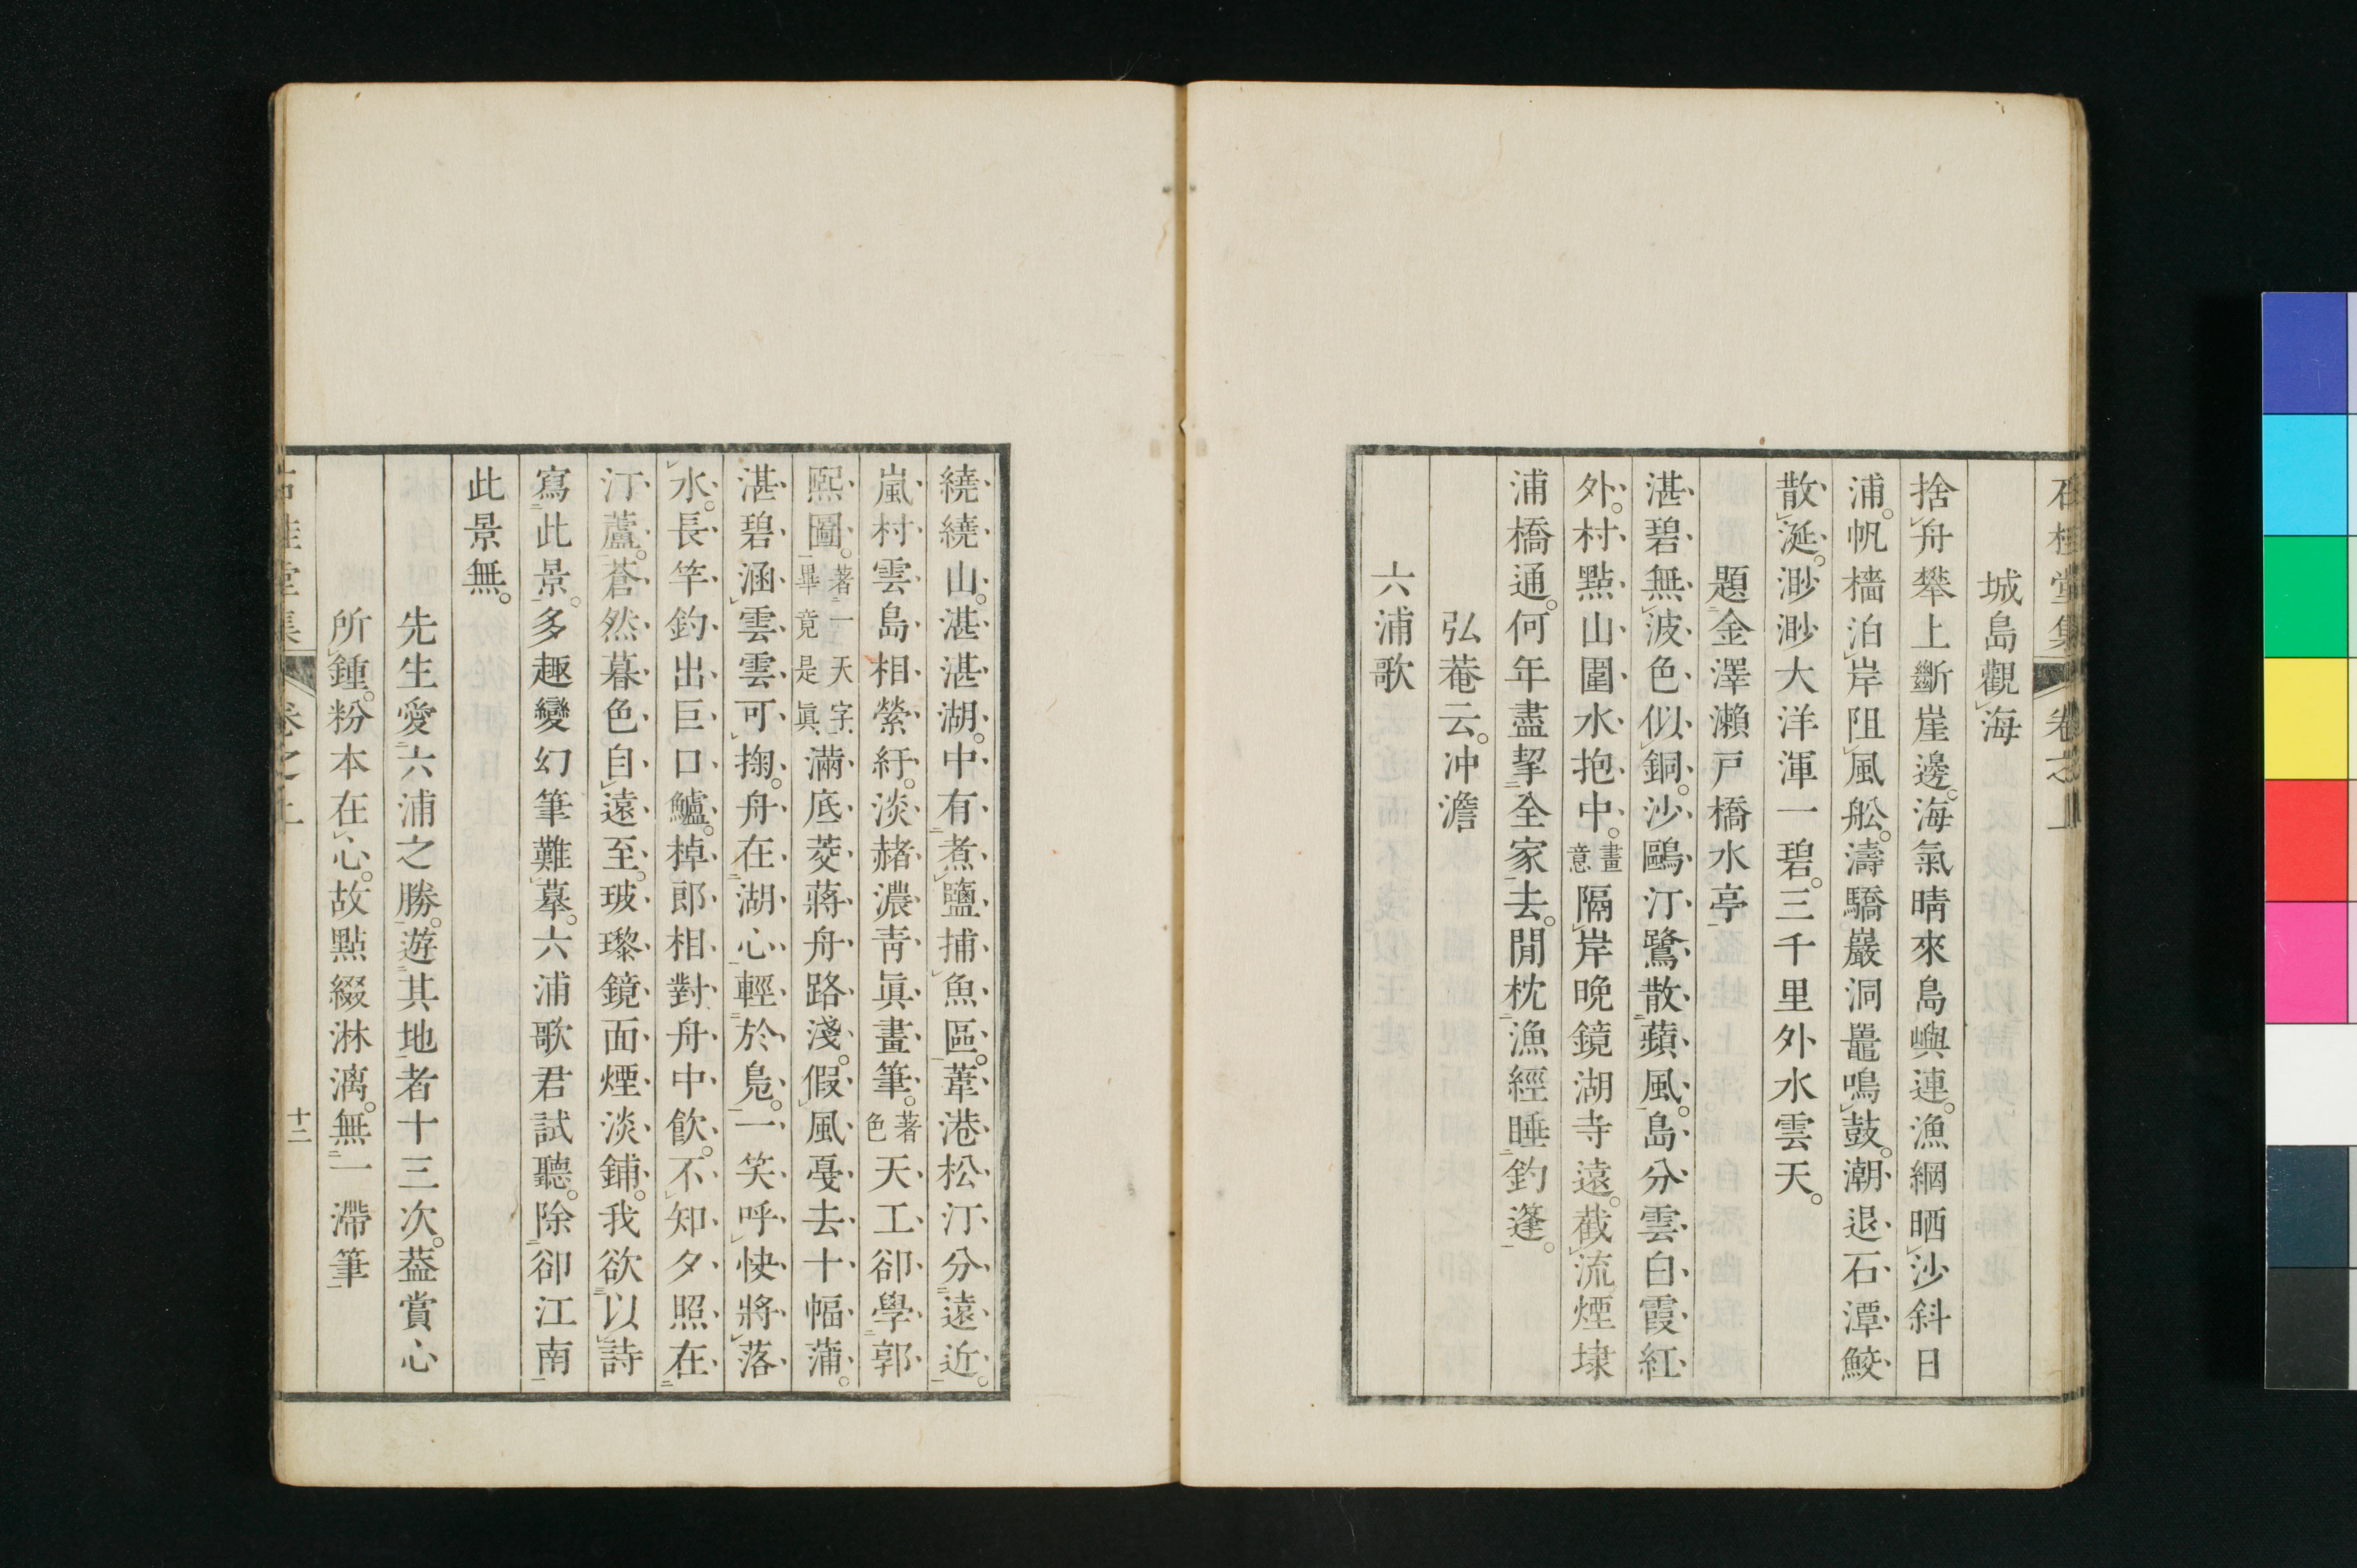 石桂堂集 卷之上
城島觀海
捨舟攀上斷崖邊。海氣晴來島嶼連。漁網晒沙斜日
浦。帆檣泊岸阻風舩。濤驕巖洞鼉鳴鼓。潮退石潭鮫
散涎。渺渺大洋渾一碧。三千里外水雲天。
題金澤瀨戸橋水亭
湛碧無波色似銅。沙鷗汀鷺散蘋風。島分雲白霞紅
外。村點山圍水抱中。畫意隔岸晚鏡湖寺遠。截流煙埭
浦橋通。何年盡挈全家去。閒枕漁經睡釣篷。
弘菴云。冲澹
六浦歌
繞繞山。湛湛湖。中有煮鹽捕魚區。葦港松汀分遠近。
嵐村雲島相縈紆。淡赭濃靑眞畫筆。著色天工卻學郭
熙圖。著一天字畢竟是眞滿底菱蔣舟路淺。假風戞去十幅蒲。
湛碧涵雲雲可掬。舟在湖心輕於鳧。一笑呼快將落
水。長竿釣出巨口鱸。棹郎相對舟中飮。不知夕照在
汀蘆。蒼然暮色自遠至。玻瓈鏡面煙淡鋪。我欲以詩
寫此景。多趣變幻筆難摹。六浦歌君試聽。除卻江南
此景無。
先生愛六浦之勝。遊其地者十三次。蓋賞心
所鍾。粉本在心。故點綴淋漓。無一滯筆
石桂堂集 卷之上 十二